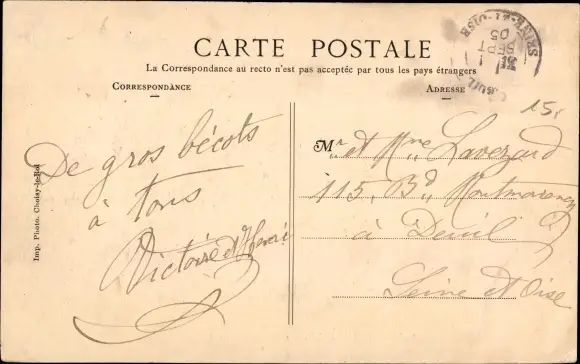 CARTE POSTALE
La Correspondance au recto n'est pas acceptée par tous les pays étrangers
CORRESPONDANCE
ADRESSE
15.
De gros bécots
à tous
Victoire et Henri
Mr et Mme Laverzard
115, Bd Montmorency
à Deuil
Seine et Oise
Imp. Photo. Choisy-le-Roi
SEINE-ET-OISE
SEPT
05